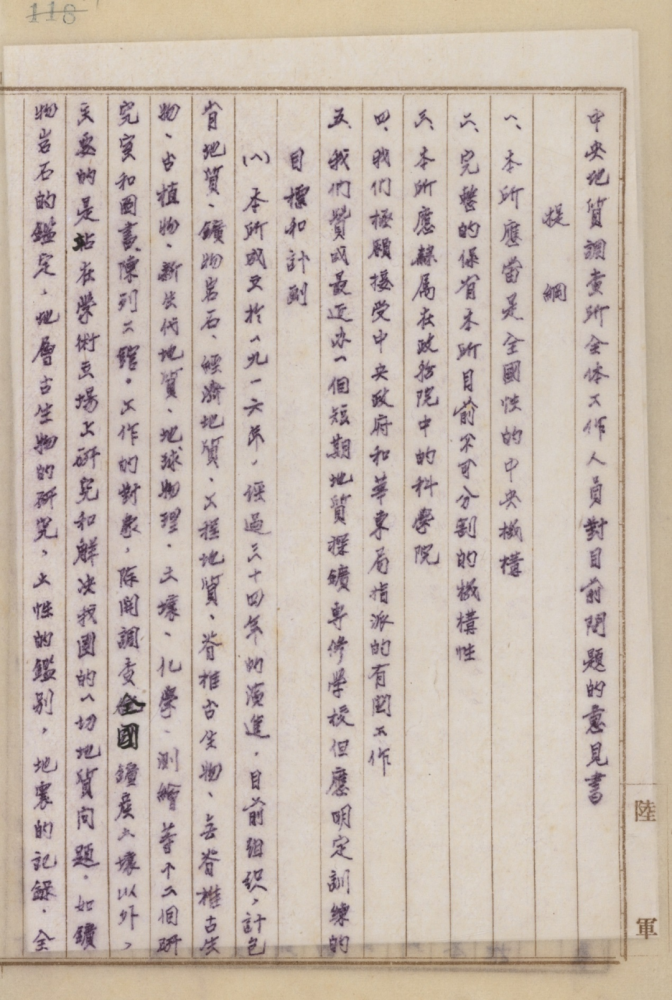 118
中央地質調查所全体工作人員對目前問題的意見書
提綱
一、本所應當是全國性的中央機構
二、完整的保有本所目前不可分割的機構性
三、本所應隸屬在政務院中的科學院
四、我們極願接受中央政府和華東局指派的有関工作
五、我們贊成最近办一個短期地質探鑛專修學校但應明定訓練的
目標和計劃
(一)本所成立於一九一六年，經過三十四年的演進，目前組织，計包
有地質、鑛物岩石、經濟地質、工程地質、脊椎古生物、無脊椎古生
物、古植物、新生代地質、地球物理、土壤、化學、測繪等十二個研
究室和图書陳列二舘。工作的對象，除開調查全國鑛産土壤以外，
主要的是站在學術立場上研究和解决我國的一切地質问題。如鑛
物岩石的鑑定，地層古生物的研究，土性的鑑别，地震的記錄，全
陸
軍